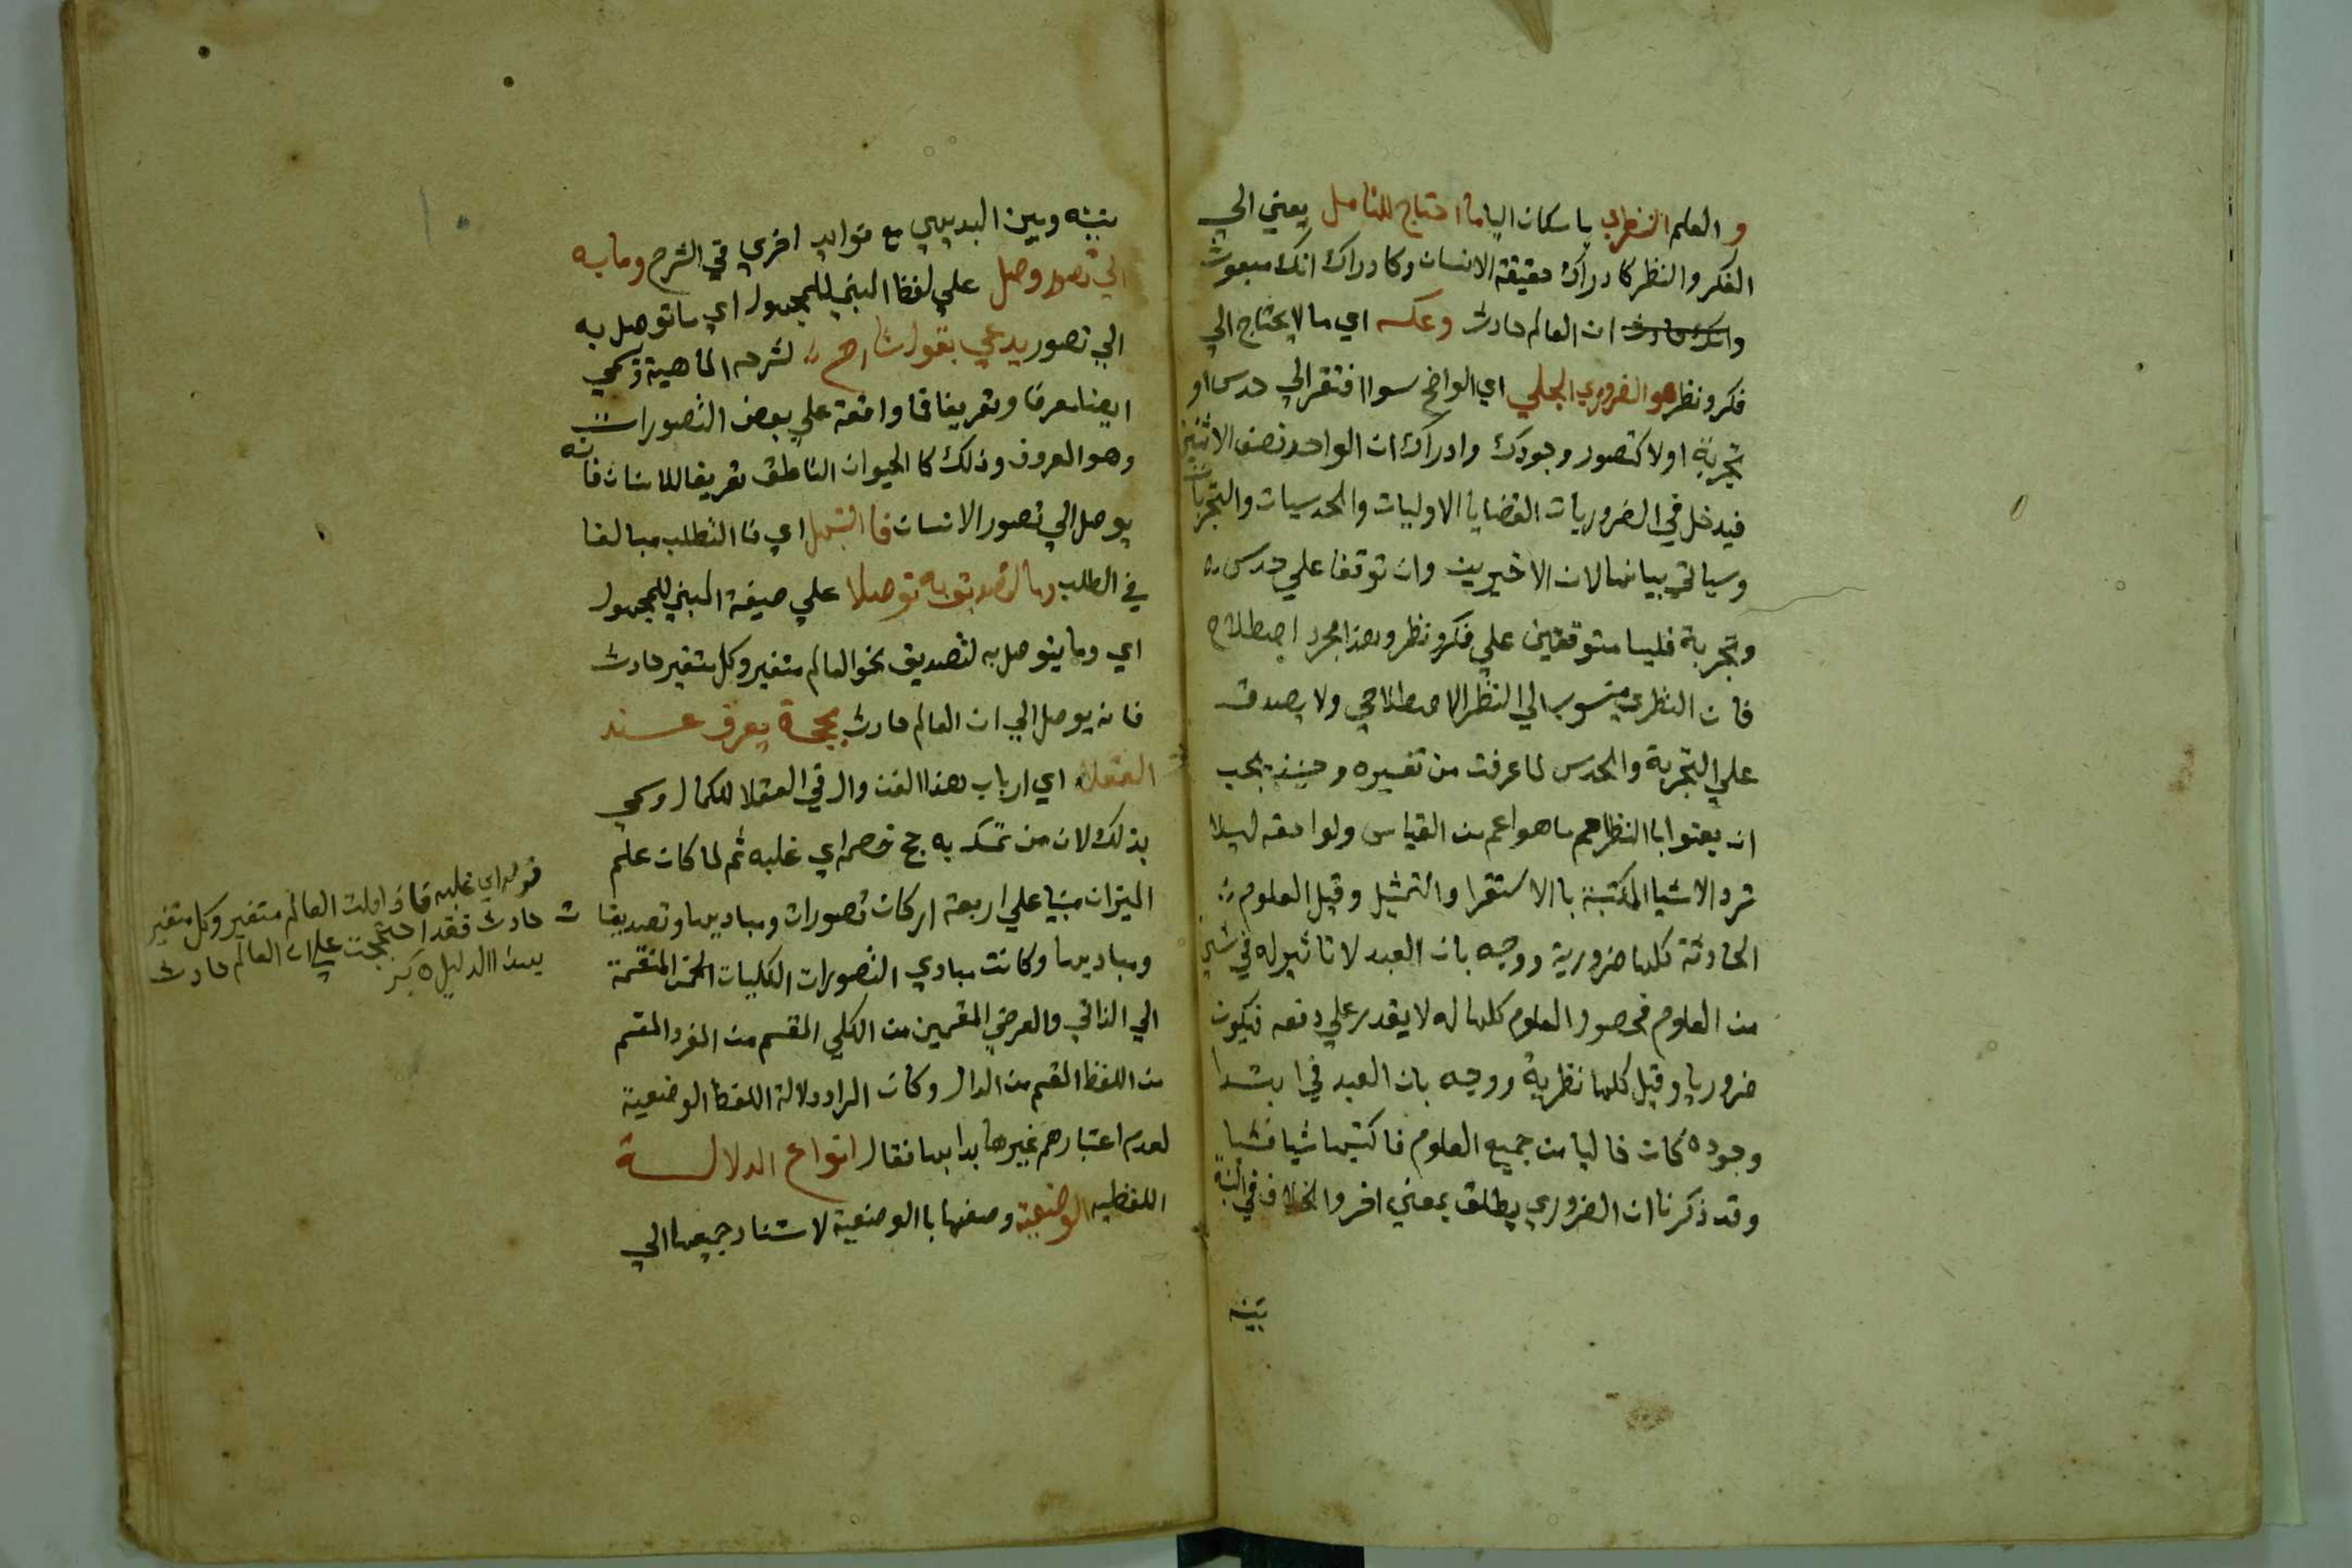 و العلم النظري باسكان اليا ما احتاج للتامل يعني الي
الفكر والنظر كادراك حقيقة الانسان وكادراك انك مبعوث
وانك حادث ان العالم حادث وعكسه اي ما لا يحتاج الي
فكر ونظر هو الضروري الجلي اي الواضح سوا افتقر الي حدس او
تجربة اولا كتصور وجودك وادراك ان الواحد نصف الاثنين
فيدخل في الضروريات القضايا الاوليات والحدسيات والتجربات
وسياتي بيانها لان الاخيرين وان توقفا علي حدس
وتجربة فليسا متوقفين علي فكر ونظر وهذا مجرد اصطلاح
فان النظري منسوب الي النظر الاصطلاحي ولا يصدق
علي التجربة والحدس لما عرفت من تفسيره وحينئذ يجب
ان يعنوا باالنظر ما هو اعم من القياس ولواحقه ليلا
ترد الاشيا المكتسبة باالاستقرا والتمثيل وقيل العلوم
الحادثة كلها ضرورية ووجه بان العبد لا تاثير له في شي
من العلوم فحصور العلوم كلها له لا يقدر علي دفعه فيكون
ضروريا وقيل كلها نظرية ووجه بان العبد في ابتدا
وجوده كان خاليا من جميع العلوم فاكتسبها شيا فشيا
وقد ذكرنا ان الضروري يطلق بمعني اخر والخلاف في النسبة
بينه
بينه وبين البديهي مع فوايد اخري في الشرح وما به
الي تصور وصل علي لفظ المبني للمجهول اي ما توصل به
الي تصور يدعي بقول شارح لشرحه الماهية وسمي
ايضا معرفا وتعريفا فاواقعة علي بعض التصورات
وهو المعروف وذلك كا الحيوان الناطق تعريفا للانسان فانه
يوصل الي تصور الانسان فاالتبتهل اي فا التطلب مبالغا
في الطلب وما لتصديق به توصلا علي صيغة المبني للمجهول
اي وما يتوصل به لتصديق نحو العالم متغير وكل متغير حادث
فانه يوصل الي ان العالم حادث بحجة يعرف عند
العقلا اي ارباب هذا الفن وال في العقلا للكمال وسمي
بذلك لان من تمسك به حج خصمه اي غلبه ثم لما كان علم
الميزان مبنيا علي اربعة اركان تصورات ومباديها وتصديقات
ومباديها وكانت مبادي التصورات الكليات الخمس المنقسمة
الي الذاتي والعرضي المقسمين من الكلي المقسم من المفرد المقسم
من اللفظ المقسم من الدال وكان المراد دلالة اللفظ الوضعية
لعدم اعتبارهم غيرها بدا بها فقال انواع الدلالة
اللفظيه الوضعية وصفها باالوضعية لاستناد جميعها الي
قوله اي غلبه فاذا قلت العالم متغير وكل متغير
حادث فقد احتججت علي ان العالم حادث
بهذا الدليل